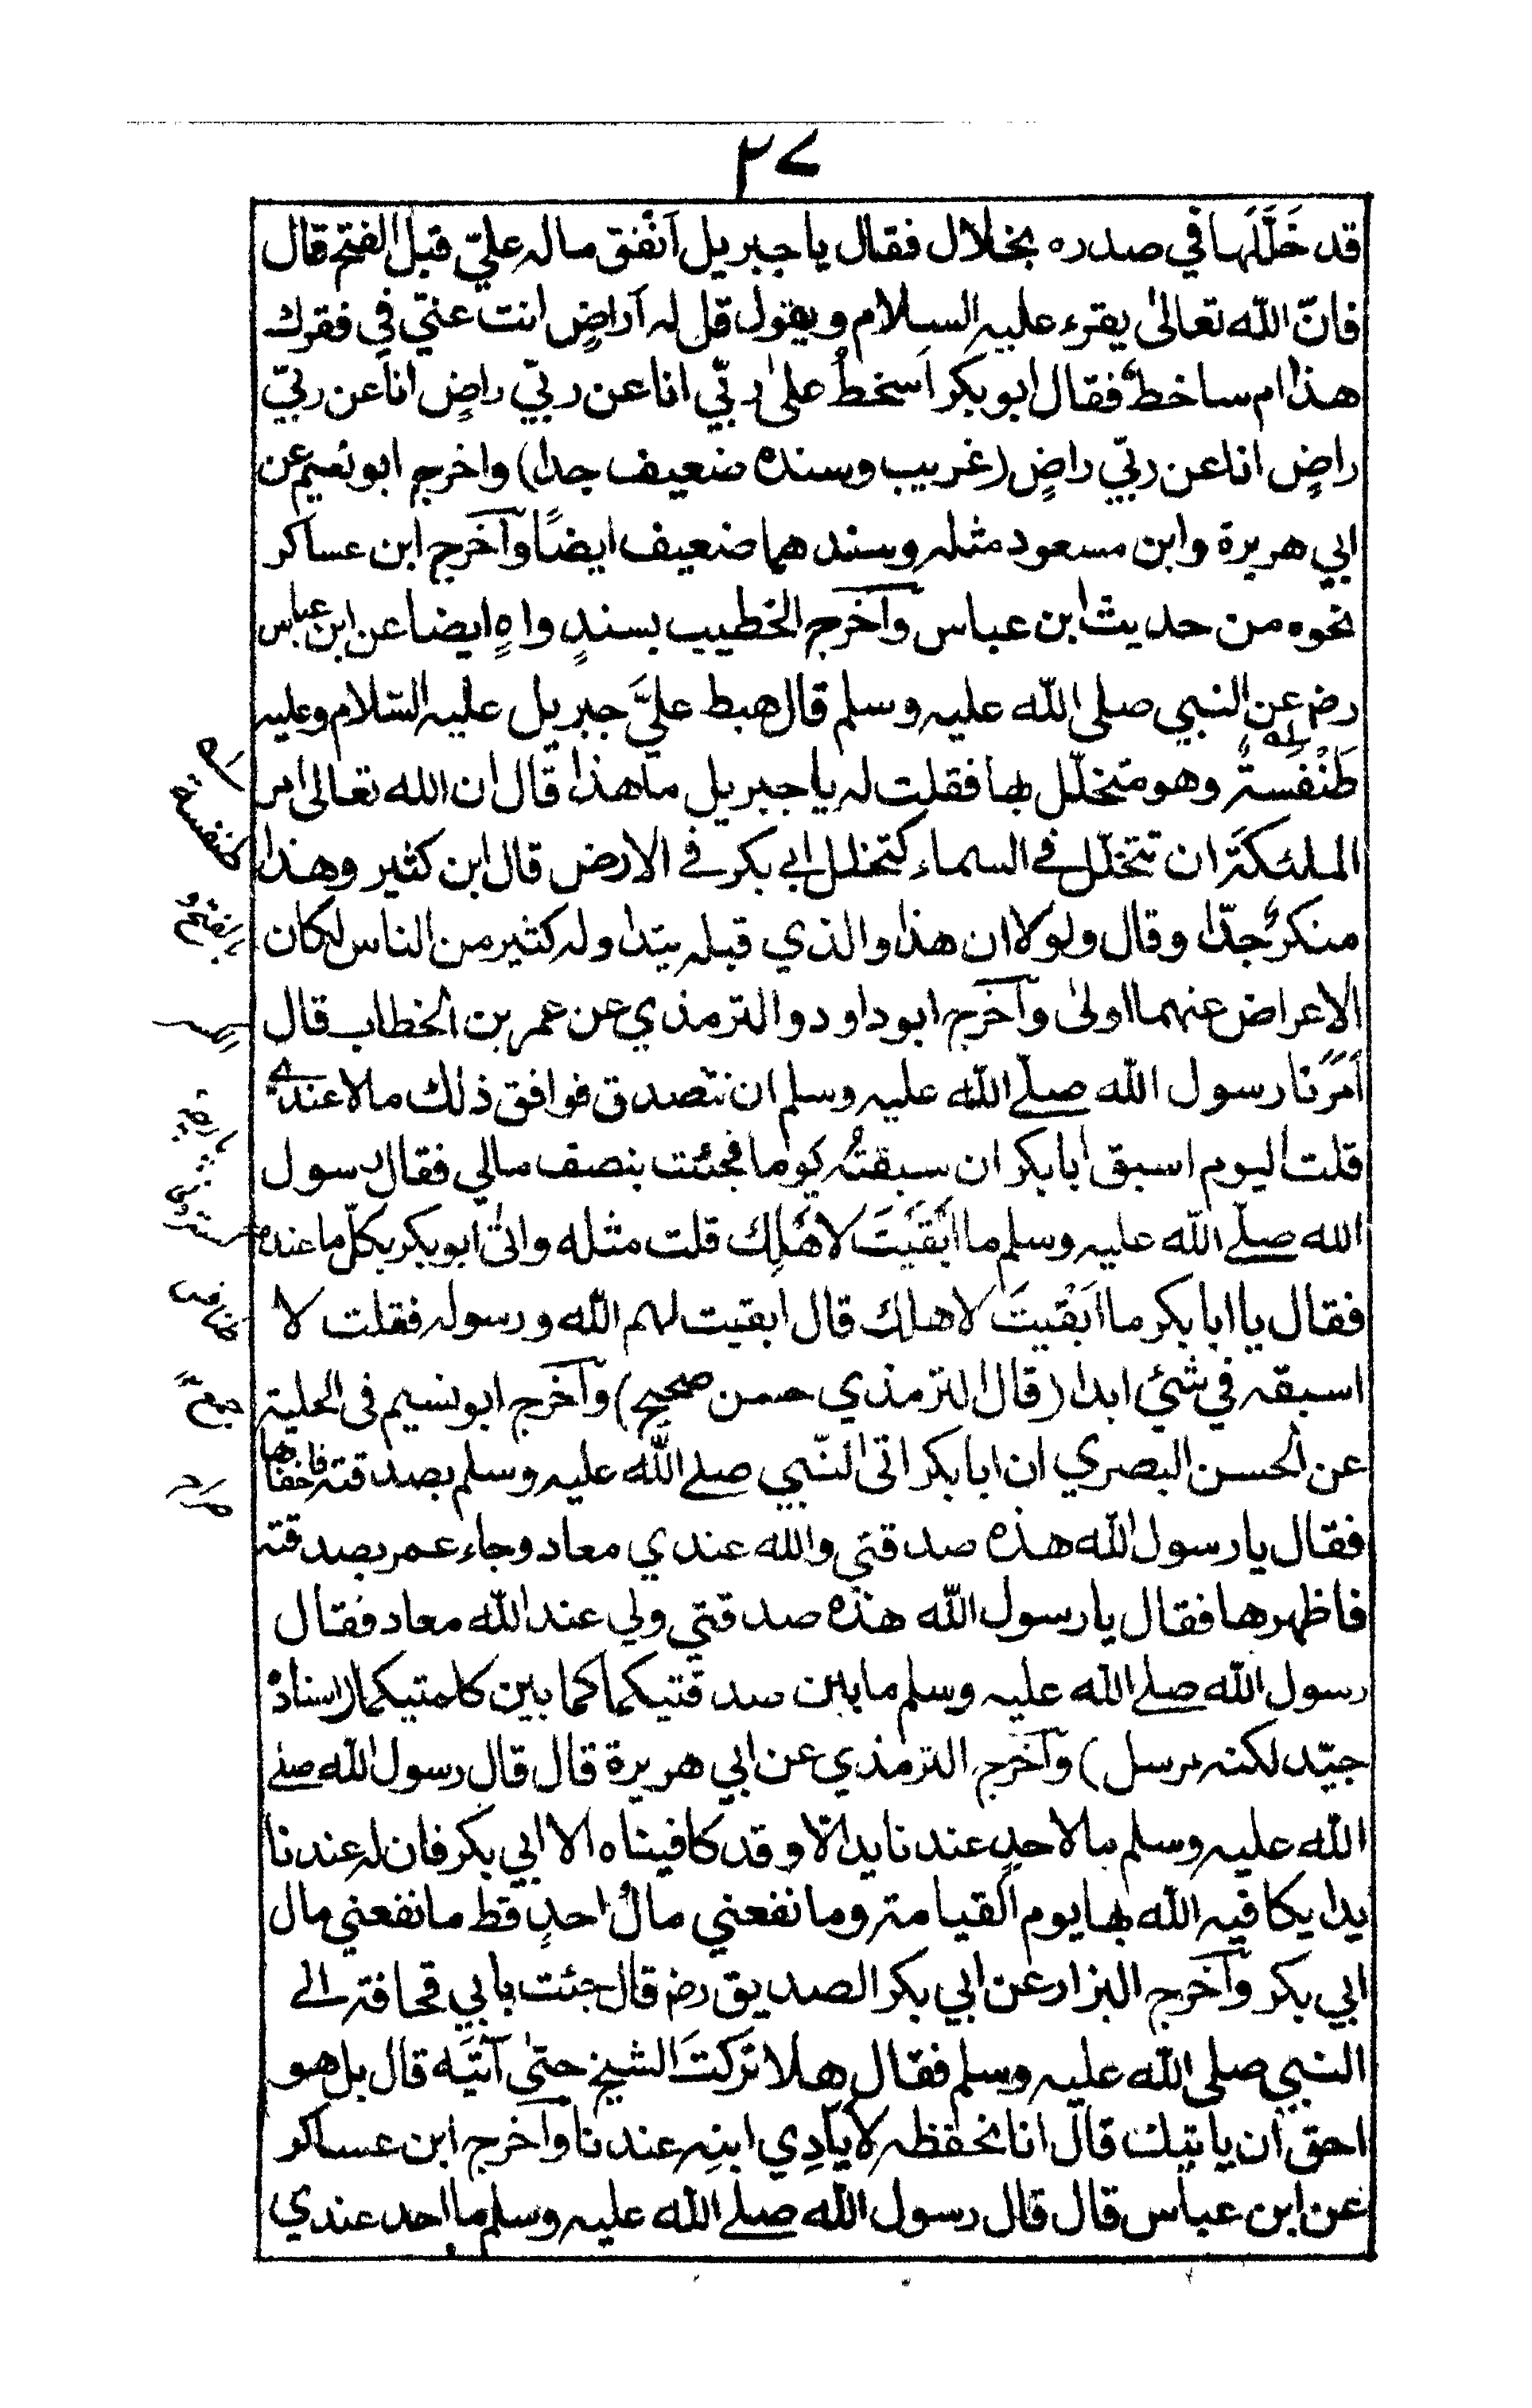 ٢٧
قد خَلَّلَها في صدره بخلال فقال يا جبريل اَنْفق ماله عليّ قبل الفتح قال
فانّ الله تعالىٰ يقرء عليه السلام ويقول قل له أراضٍ انت عنّي في فقرك
هذا ام ساخطٌ فقال ابو بكر اَسخطُ علىٰ ربّي انا عن ربّي راضٍ انا عن ربّي
راضٍ انا عن ربّي راضٍ (غريب وسنده ضعيف جدا) واخرج ابو نعيم عن
ابي هريرة وابن مسعود مثله وسندهما ضعيف ايضًا وآخرج ابن عساكر
نحوه من حديث ابن عباس وآخرج الخطيب بسندٍ واهٍ ايضا عن ابن عباس
رضـ عن النبي صلى الله عليه وسلم قال هبط عليَّ جبريل عليه السّلام وعليه
طَنْفَسَةٌ وهو متخلّل بها فقلت له يا جبريل ما هذا قال ان الله تعالى امر
الملئكة ان تتخلّل في السماء كتخلل ابي بكر في الارض قال ابن كثير وهذا
منكرٌ جدّا وقال ولولا ان هذا والذي قبله يتداوله كثير من الناس لكان
الاعراض عنهما اولىٰ وآخرج ابو داود والترمذي عن عمر بن الخطاب قال
اَمَرَنا رسول الله صلّے الله عليه وسلم ان نتصدق فوافق ذلك مالا عندي
قلت اليوم اسبق ابا بكر ان سبقتُه يوما فجئت بنصف مالي فقال رسول
الله صلّے الله عليه وسلم ما اَبْقَيْتَ لاهْلِك قلت مثله واتىٰ ابو بكر بكلّ ما عنده
فقال يا ابا بكر ما اَبْقَيتَ لاهلك قال ابقيت لهم الله ورسوله فقلت لا
اسبقه في شئ ابدا (قال الترمذي حسن صحيح) وآخرج ابو نسيم فى الحلية
عن الحسن البصري ان ابا بكر اتى النّبي صلے الله عليه وسلم بصدقته فاخفاها
فقال يا رسول الله هذه صدقتي والله عندي معاد وجاء عمر بصدقته
فاظهرها فقال يا رسول الله هذه صدقتي ولي عند الله معاد فقال
رسول الله صلے الله عليه وسلم ما بين صدقتيكما كما بين كلمتيكما (اسناده
جيّد لكنه مرسل) وآخرج الترمذي عن ابي هريرة قال قال رسول الله صلے
الله عليه وسلم مالاحدٍ عندنا يد الّا وقد كافيناه الا ابي بكر فان له عندنا
يدا يكافيه الله بها يوم القيامة وما نفعني مالُ احدٍ قط ما نفعني مال
ابي بكر وآخرج البزار عن ابي بكر الصديق رضـ قال جئت بابي قحافة الے
النبي صلى الله عليه وسلم فقال هلا تركتَ الشيخ حتى آتيَه قال بل هو
احق ان ياتيك قال انا نحفظه لأيادِي ابنِه عندنا وآخرج ابن عساكر
عن ابن عباس قال قال رسول الله صلے الله عليه وسلم ما احد عندي